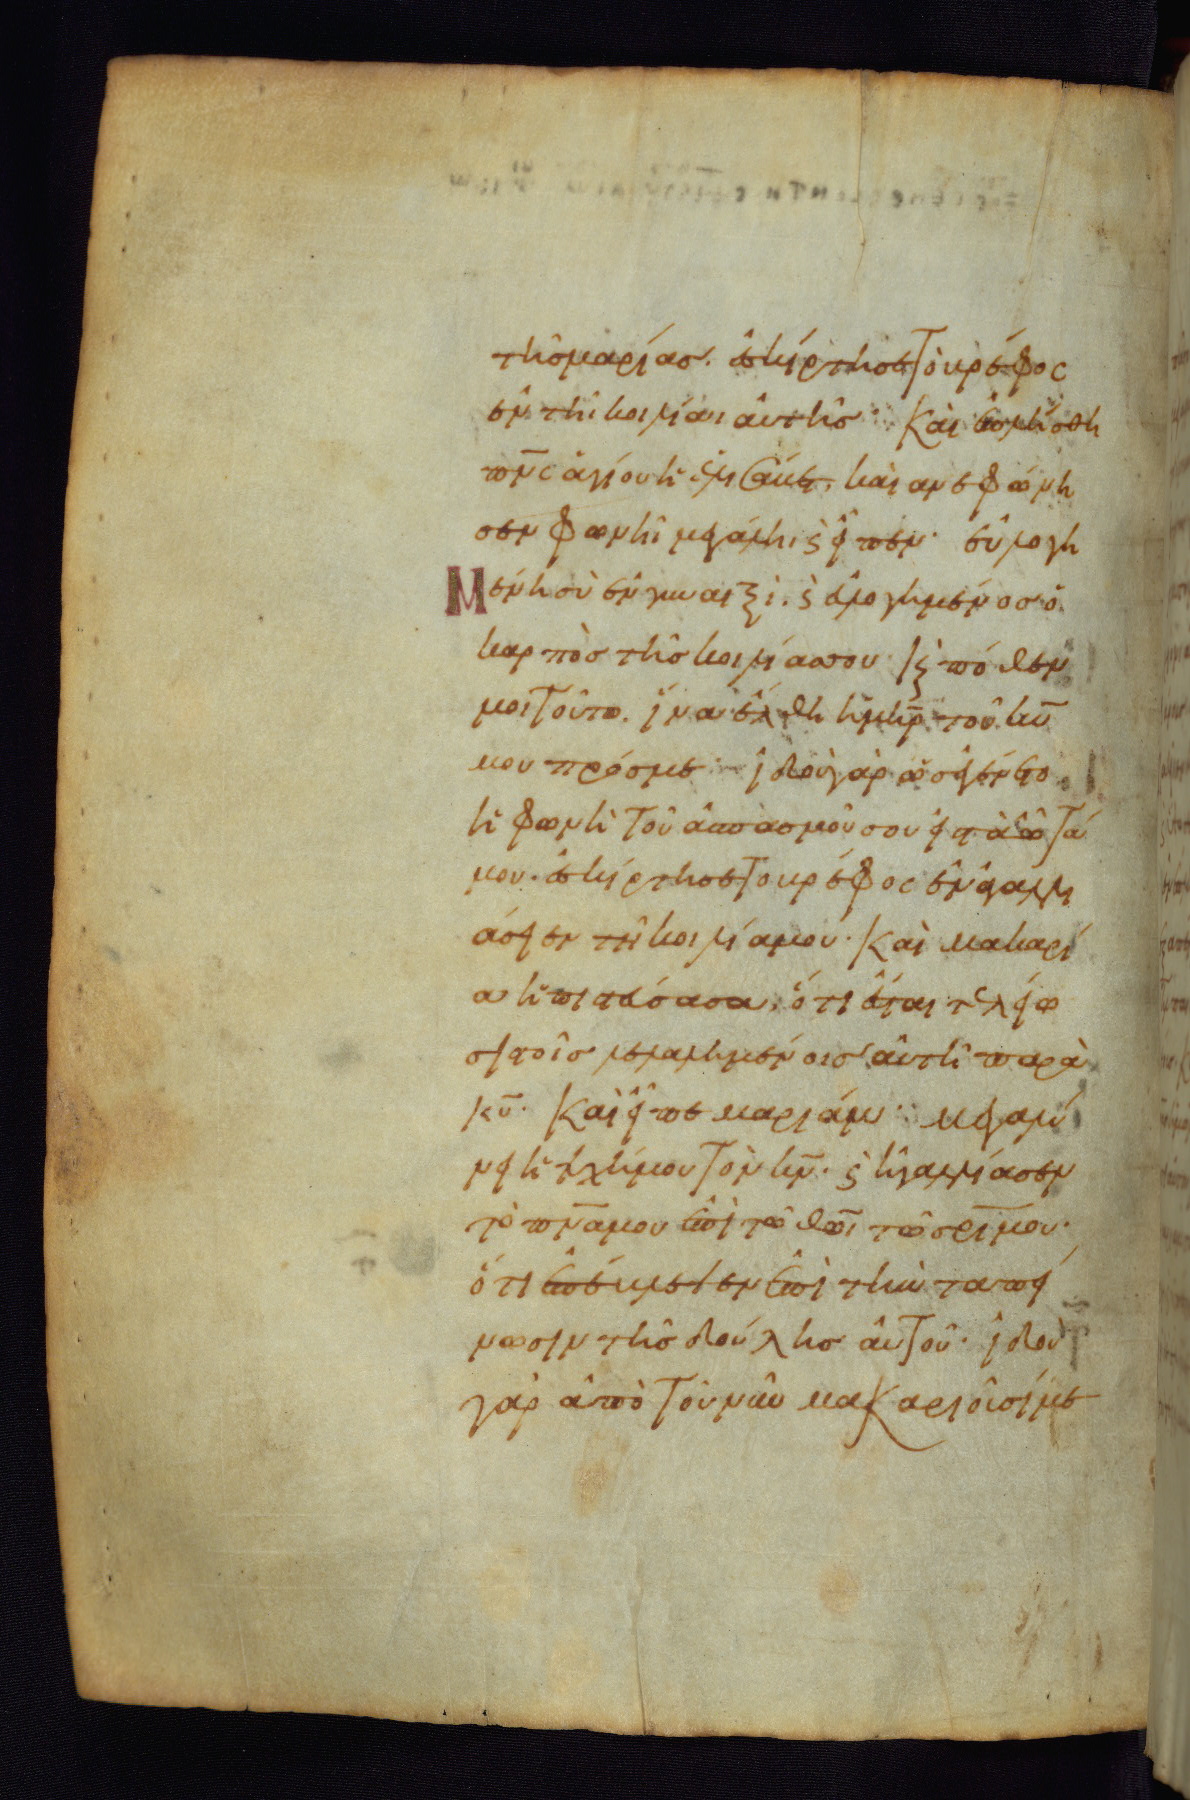 της μαρίας. ἐσκίρτησε τὸ βρέφος
ἐν τῆι κοιλίαι αὐτῆς· Καὶ ἐπλήσθη
πν̅ς ἁγίου ἡ ἐλισάβετ, καὶ ἀνεφώνη
σεν φωνῆι μεγάληι ϛ εἶπεν· εὐλογη
Μένη σὺ ἐν γυναιξὶ. ϛ εὐλογημένος ὁ
καρπὸς τῆς κοιλίας σου· ϛ πόθεν
μοι τοῦτο. ἵνα ἔλθη ἡ μη̅ρ τοῦ κυ̅
μου πρός με· ἰδοὺ γὰρ ὡς ἐγένετο
ἡ φωνὴ τοῦ ἀσπασμοῦ σου εἰς τὰ ὦτά
μου. ἐσκίρτησε τὸ βρέφος ἐν ἀγαλλι
άσει ἐν τῆ κοιλία μου· Καὶ μακαρί
α ἡ πιστεύσασα, ὅτι ἔσται τελείω
σις τοῖς λελαλημένοις αὐτῆ παρὰ
κυ̅· Καὶ εἶπε μαριάμ· μεγαλύ
νει ἡ ψυχή μου τὸν κν̅· ϛ ἠγαλλίασεν
τὸ πν̅α μου ἐπὶ τῶ θω̅ι τῶ σρ̅ι μου·
ὅτι ἐπέβλεψεν ἐπὶ τὴν ταπεί
νωσιν τῆς δούλης αὐτοῦ· ἰδοὺ
γὰρ ἀπὸ τοῦ νῦν μακαριοῦσί με